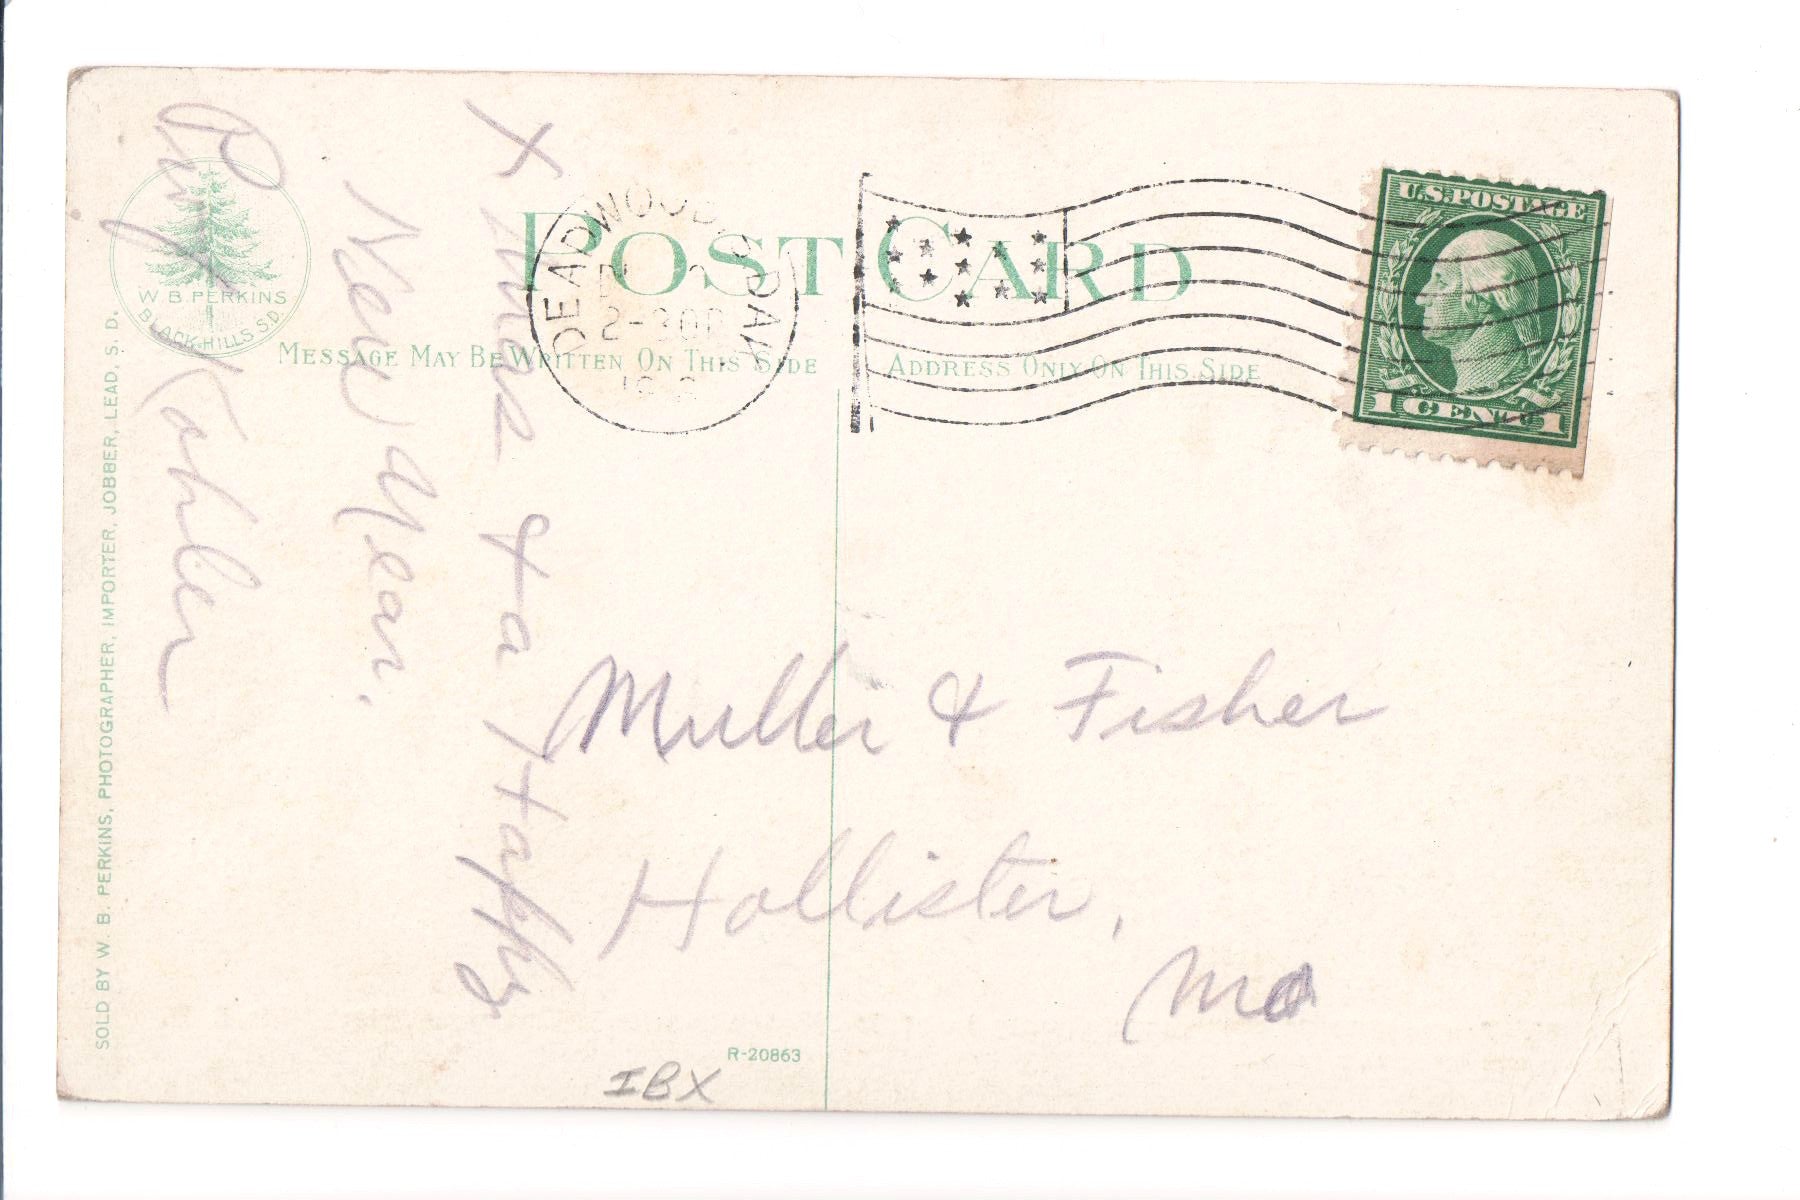 POST CARD
MESSAGE MAY BE WRITTEN ON THIS SIDE
ADDRESS ONLY ON THIS SIDE
U.S. POSTAGE
1 CENT 1
DEADWOOD DAK
2-30P
W. B. PERKINS
BLACK-HILLS S.D.
SOLD BY W. B. PERKINS, PHOTOGRAPHER, IMPORTER, JOBBER, LEAD, S. D.
X mas & a Happy
New Year.
Kohler
Muller & Fisher
Hollister,
Mo
R-20863
IBX